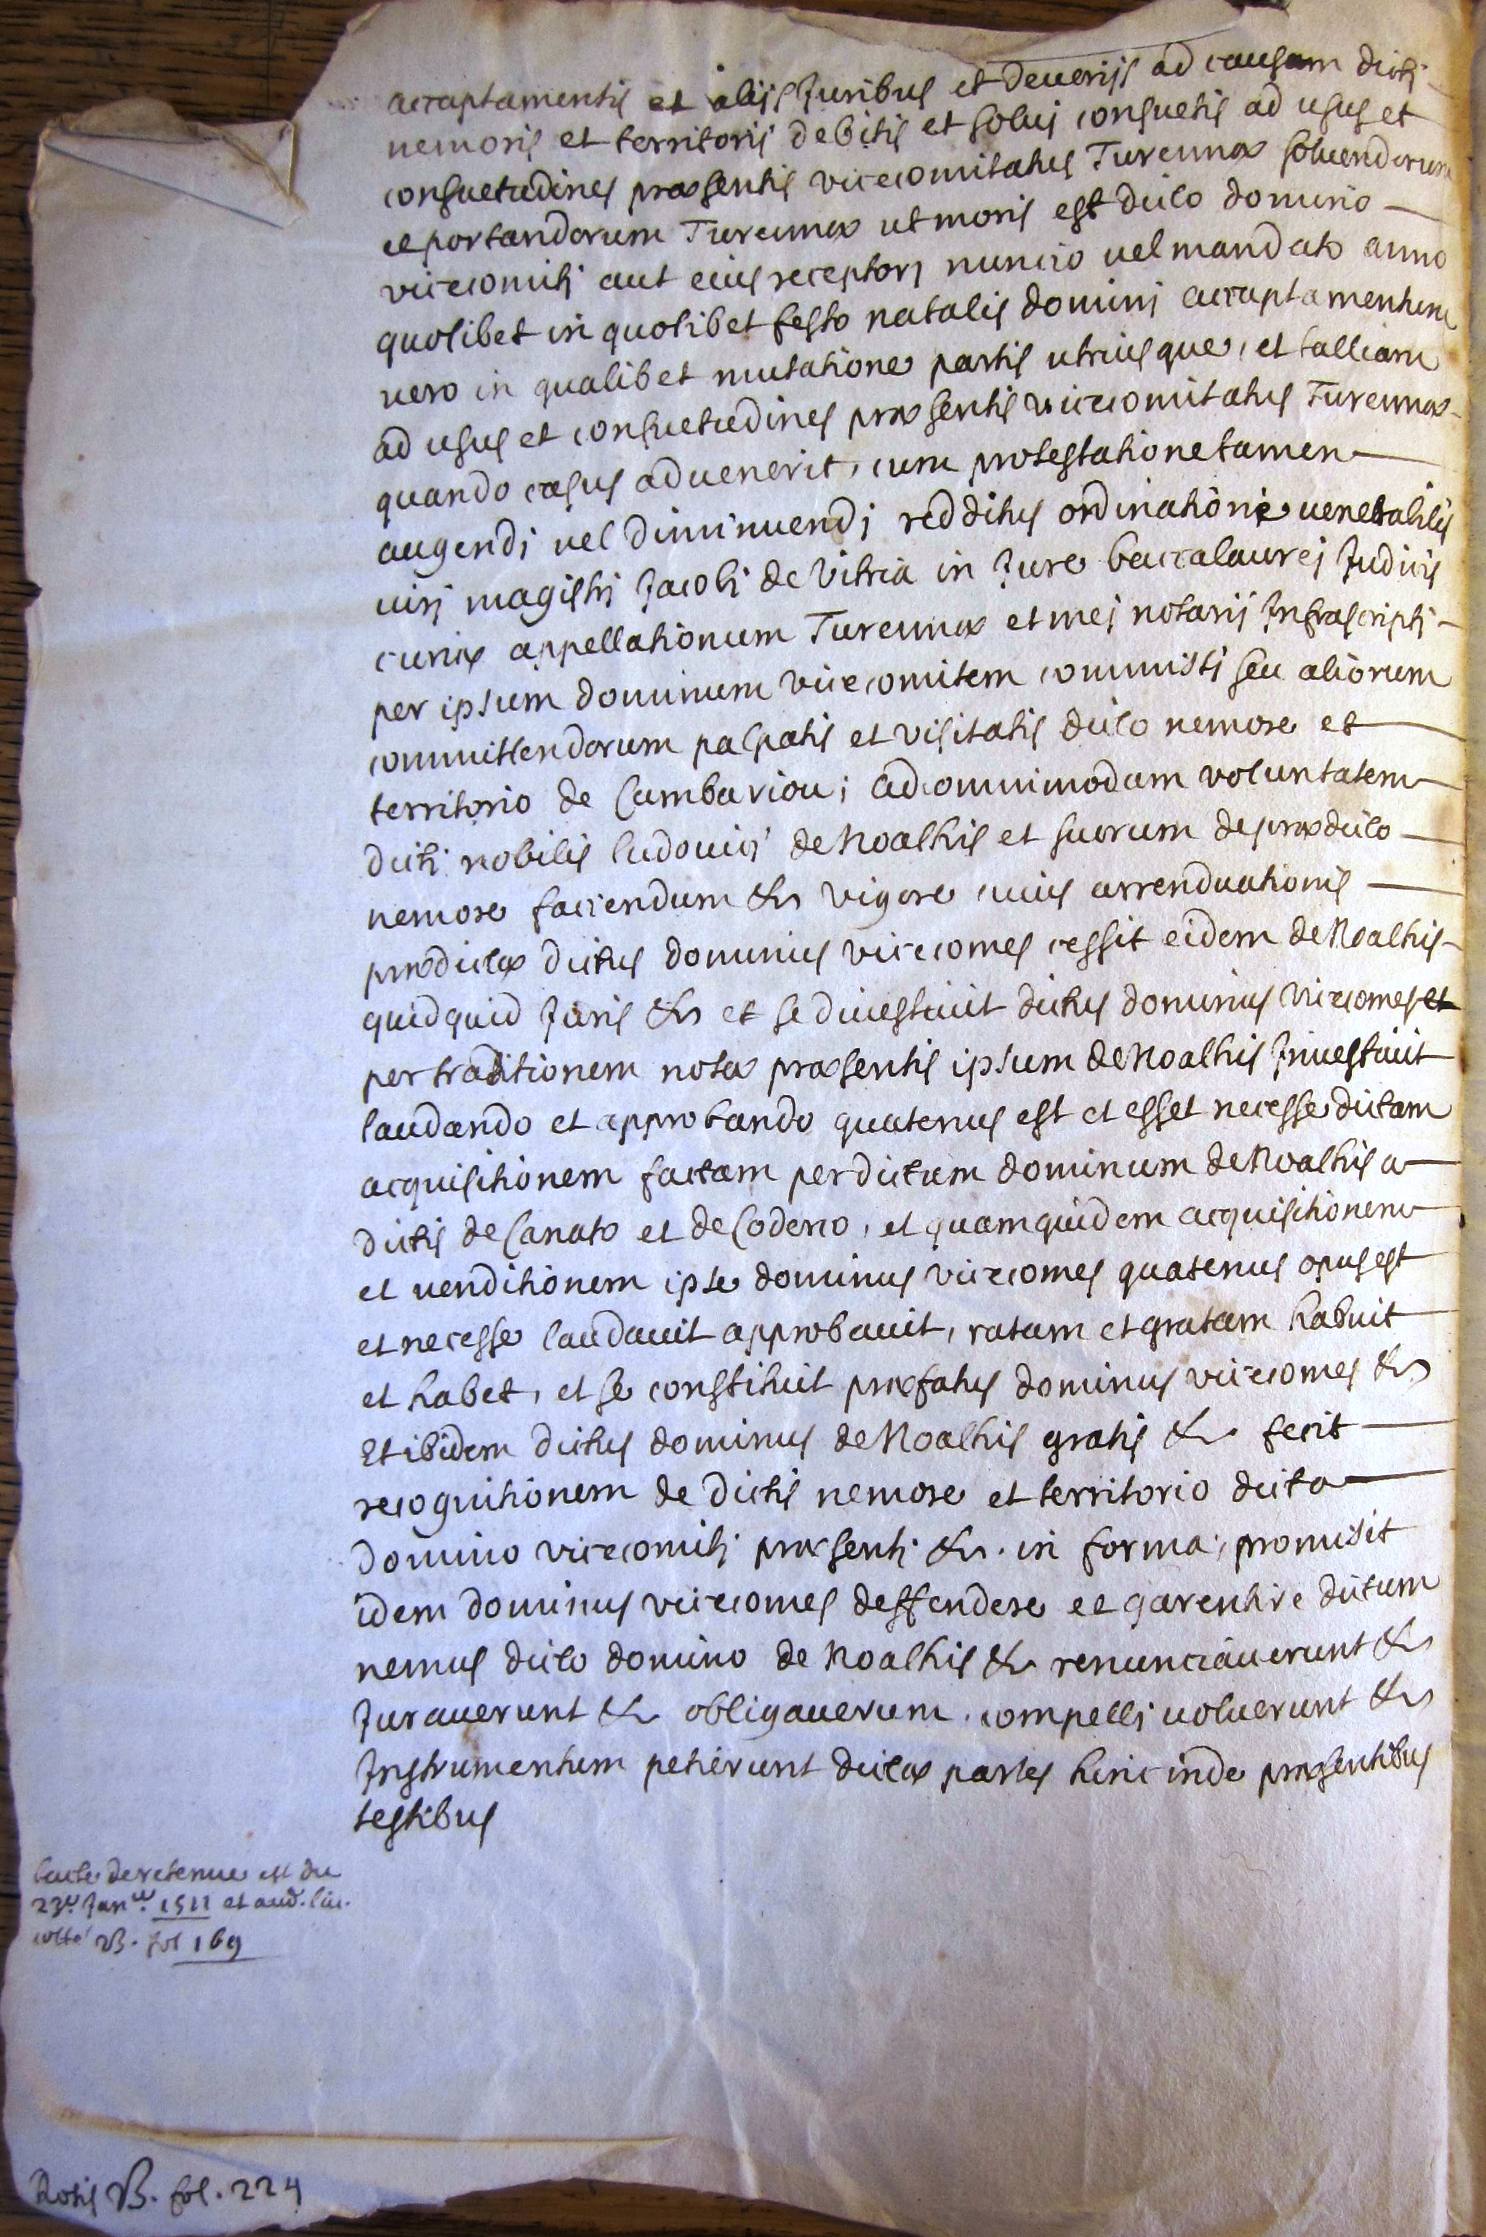 accaptamentis et aliis Juribus et deveriis ad causam dicti
nemoris et territoris debitis et solui consuetis ad usus et
consuetudines præsentis vicecomitatus Turennæ soluendorum
et portandorum Turennæ ut moris est dicto domino —
vicecomiti aut eius receptorj nuncio vel mandato anno
quolibet in quolibet festo natalis dominj accaptamentum
vero in qualibet mutatione partis utriusque, et talliam
ad usus et consuetudines præsentis vicecomitatus Turennæ
quando casus advenerit, cum protestatione tamen —
augendj vel diminuendj redditus ordinatione venerabilis
virj magistri Jacobi de Vitria in Jure baccalaurej Judicis
curiæ appellationum Turennæ et mej notarij Infrascripti —
per ipsum dominum vicecomitem commissi seu aliorum
committendorum palpatis et visitatis dicto nemore et —
territorio de Cambaviou; ad omnimodam voluntatem —
dicti nobilis ludovicj de Noalhis et suorum de prædicto —
nemore faciendum &c vigore cuius arrenduationis —
prædictæ dictus dominus vicecomes cessit eidem de Noalhis —
quidquid Juris &c et se divestivit dictus dominus vicecomes et
per traditionem notæ præsentis ipsum de Noalhis Jnvestivit
laudando et approbando quatenus est et esset necesse dictam
acquisitionem factam per dictum dominum de Noalhis a —
dictis de Canato et de Coderco, et quamquidem acquisitionem
et venditionem ipse dominus vicecomes quatenus opus est
et necesse laudavit approbavit, ratam et gratam habuit
et habet, et se constituit præfatus dominus vicecomes &c
Et ibidem dictus dominus de Noalhis gratis &c fecit —
recognitionem de dictis nemore et territorio dicto —
domino vicecomiti præsenti &c. in forma, promisit
idem dominus vicecomes deffendere et garentire dictum
nemus dicto domino de Noalhis &c renunciaverunt &c
Juraverunt &c obligaverunt. compelli voluerunt &c
Jnstrumentum petierunt dictæ partes hinc inde præsentibus
testibus
lacte de retenue est du
23.e Jan.er 1511 et aud. liu.
cotté B. fol 169
Rotis B. fol. 224